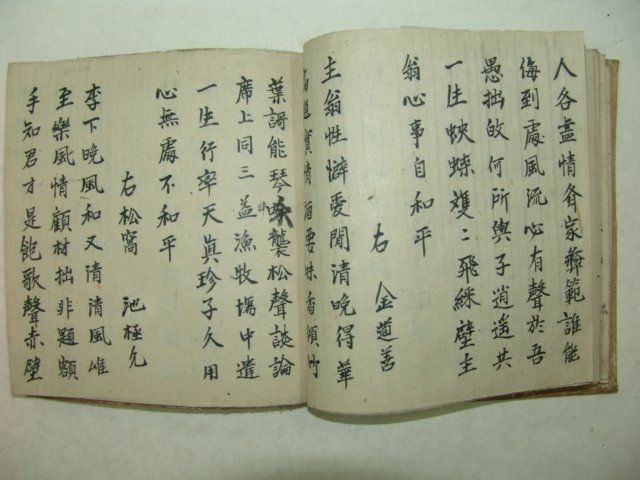 人各盡情各家彝範誰能
侮到處風流心有聲於吾
愚拙故何所與子逍遙共
一生蛺蝶雙二飛綵壁主
翁心事自和平
右 金道善
主翁性癖愛閒清晚得華
過賀情酒要妹香傾竹
葉謌能琴襲松聲談論
席上同三益漁牧場中遣
一生行宰天眞珍子久用
心無處不和平
右松窩 池極允
李下晚風和又清清風雄
至樂風情顧材拙非題額
手知君才是飽歌聲赤壁